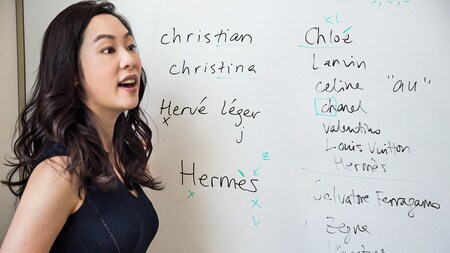 christian
christina
Hervé léger
x
j
Hermès
z
x
x
L
KL
Chloé
Lanvin
celine "au"
chanel
Valentino
Louis Vuitton
Hermès
Salvatore Ferragamo
Zegna